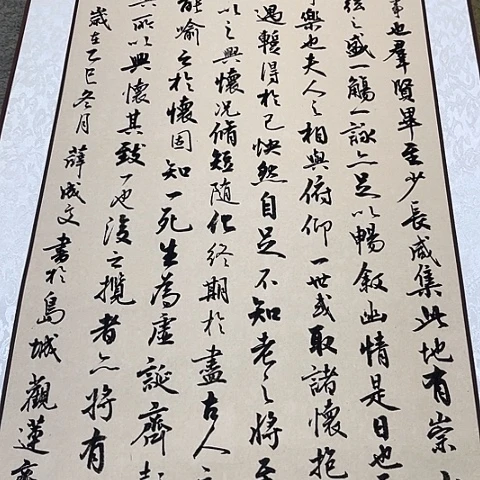 事也羣賢畢至少長咸集此地有崇
弦之盛一觴一詠亦足以暢敘幽情是日也
樂也夫人之相與俯仰一世或取諸懷抱
遇暫得於己快然自足不知老之將至
以之興懷況脩短隨化終期於盡古人
能喻之於懷固知一死生為虛誕齊彭
所以興懷其致一也後之攬者亦將有
歲在乙巳冬月薛成文書於島城觀蓮齋